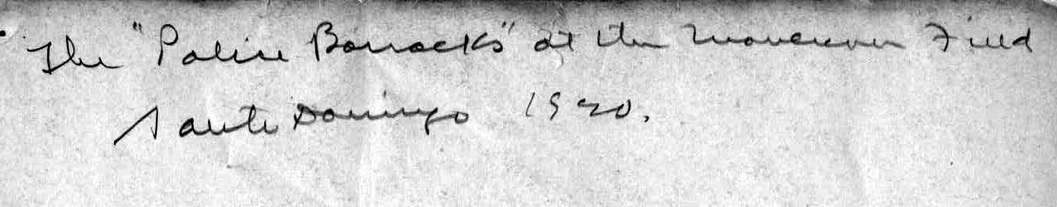 The "Police Barracks" at the Maneuver Field
Santo Domingo 1920.